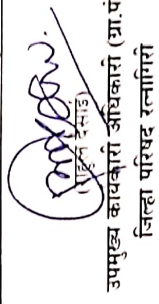 (राहुल देसाई)
उपमुख्य कार्यकारी अधिकारी (ग्रा.पं
जिल्हा परिषद रत्नागिरी